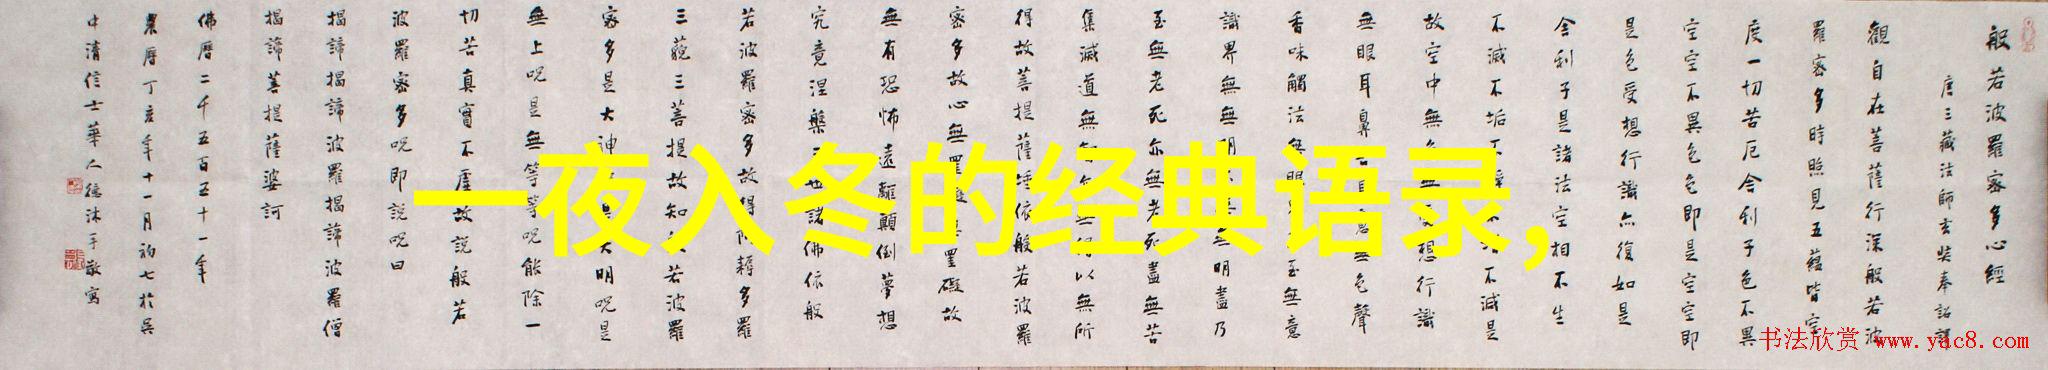 般若波羅蜜多心經
唐三藏法師玄奘奉詔譯
觀自在菩薩行深般若波
羅蜜多時照見五蘊皆空
度一切苦厄舍利子色不異
空空不異色色即是空空即
是色受想行識亦復如是
舍利子是諸法空相不生
不滅不垢不不減是
故空中無受想行識
無眼耳鼻無色聲
香味觸法無眼至無意
識界無無明無明盡乃
至無老死亦無老死盡無苦
集滅道無得以無所
得故菩提薩埵依般若波羅
密多故心無罣罣礙故
無有恐怖遠離顛倒夢想
究竟涅槃世諸佛依般
若波羅密多故得阿耨多羅
三藐三菩提故知若波羅
密多是大神大明呪是
無上呪是無等等呪能除一
切苦真實不虛故說般若
波羅密多呪即說呪曰
揭諦揭諦波羅揭諦波羅僧
揭諦菩提薩婆訶
佛曆二千五百五十一年
農曆丁亥年十一月初七於吳
中清信士華人德沐手敬寫
一夜入冬的经典语录,
书法欣赏 www.yac8.com